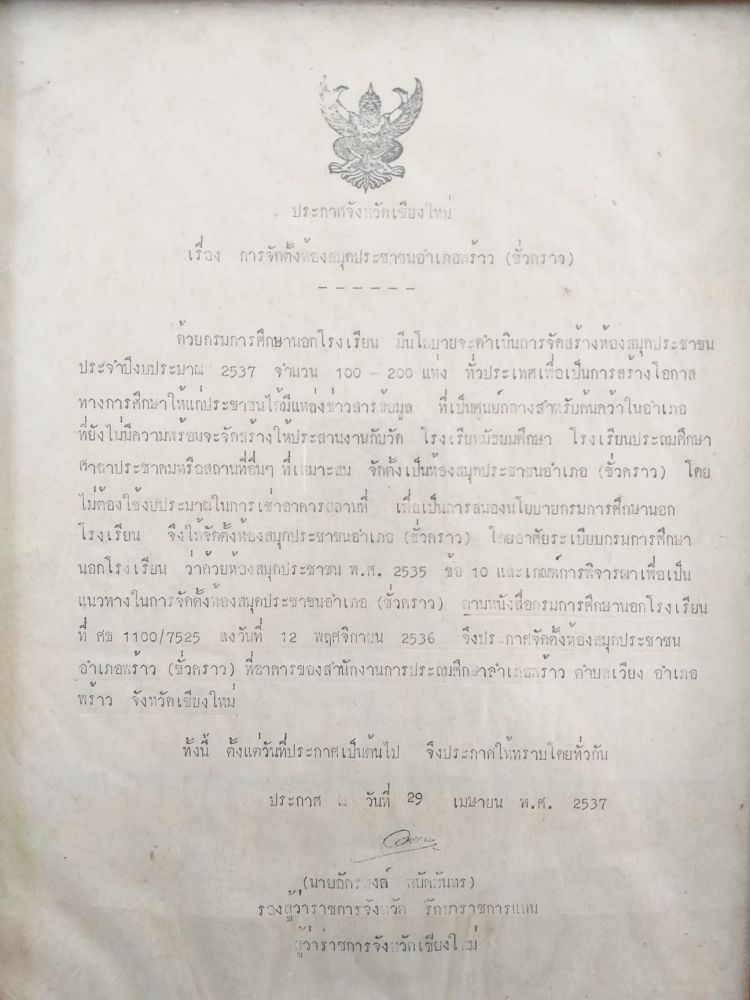 ประกาศจังหวัดเชียงใหม่
เรื่อง การจัดตั้งห้องสมุดประชาชนอำเภอพร้าว (ชั่วคราว)
- - - - - -
ด้วยกรมการศึกษานอกโรงเรียน มีนโยบายจะดำเนินการจัดสร้างห้องสมุดประชาชน
ประจำปีงบประมาณ 2537 จำนวน 100 - 200 แห่ง ทั่วประเทศเพื่อเป็นการสร้างโอกาส
ทางการศึกษาให้แก่ประชาชนได้มีแหล่งข่าวสารข้อมูล ที่เป็นศูนย์กลางสำหรับค้นคว้าในอำเภอ
ที่ยังไม่มีความพร้อมจะจัดสร้างให้ประสานงานกับวัด โรงเรียนมัธยมศึกษา โรงเรียนประถมศึกษา
ศาลาประชาคมหรือสถานที่อื่นๆ ที่เหมาะสม จัดตั้งเป็นห้องสมุดประชาชนอำเภอ (ชั่วคราว) โดย
ไม่ต้องใช้งบประมาณในการเช่าอาคารสถานที่ เพื่อเป็นการสนองนโยบายกรมการศึกษานอก
โรงเรียน จึงให้จัดตั้งห้องสมุดประชาชนอำเภอ (ชั่วคราว) โดยอาศัยระเบียบกรมการศึกษา
นอกโรงเรียน ว่าด้วยห้องสมุดประชาชน พ.ศ. 2535 ข้อ 10 และเกณฑ์การพิจารณาเพื่อเป็น
แนวทางในการจัดตั้งห้องสมุดประชาชนอำเภอ (ชั่วคราว) ตามหนังสือกรมการศึกษานอกโรงเรียน
ที่ ศธ 1100/7525 ลงวันที่ 12 พฤศจิกายน 2536 จึงประกาศจัดตั้งห้องสมุดประชาชน
อำเภอพร้าว (ชั่วคราว) ที่อาคารของสำนักงานการประถมศึกษาอำเภอพร้าว ตำบลเวียง อำเภอ
พร้าว จังหวัดเชียงใหม่
ทั้งนี้ ตั้งแต่วันที่ประกาศเป็นต้นไป จึงประกาศให้ทราบโดยทั่วกัน
ประกาศ ณ วันที่ 29 เมษายน พ.ศ. 2537
รองผู้ว่าราชการจังหวัด รักษาราชการแทน
ผู้ว่าราชการจังหวัดเชียงใหม่